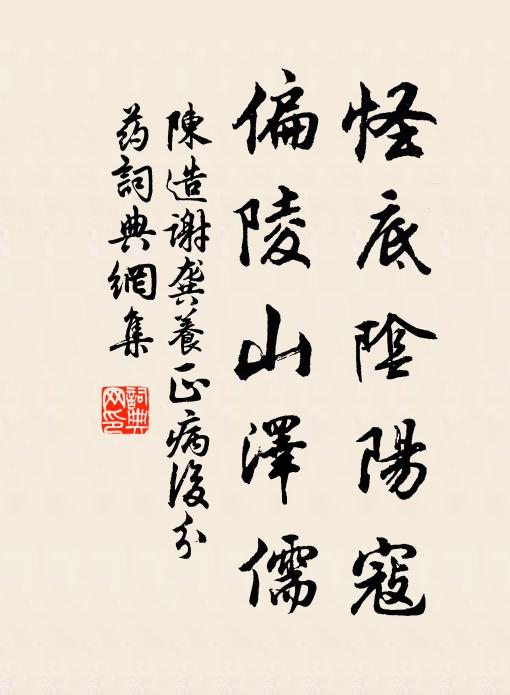 怪底陰陽寇
偏陵山澤儒
陳造謝龔養正病後分
药詞典網集
詞典網印